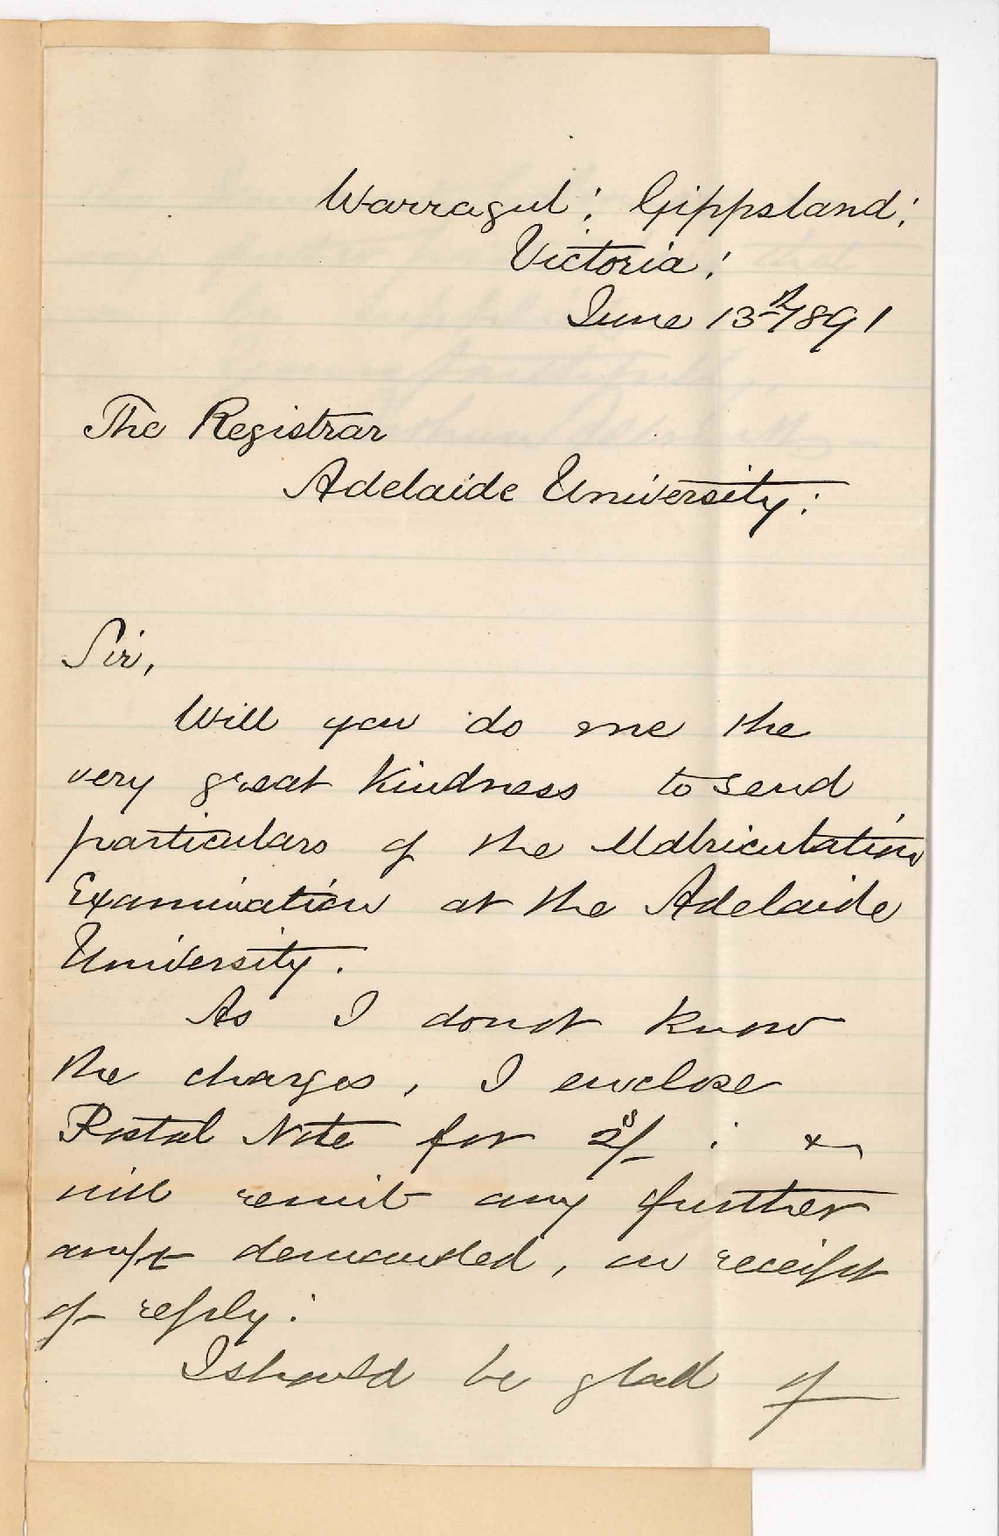 Warragul: Gippsland:
Victoria:
June 13th 1891
The Registrar
Adelaide University:
Sir,
Will you do me the
very great kindness to send
particulars of the Matriculation
Examination at the Adelaide
University.
As I do not know
the charges, I enclose
Postal Note for 2s/- : &
will remit any further
am/t demanded, on receipt
of reply:
I should be glad of